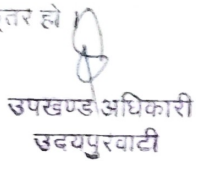 तर हो
उपखण्ड अधिकारी
उदयपुरवाटी